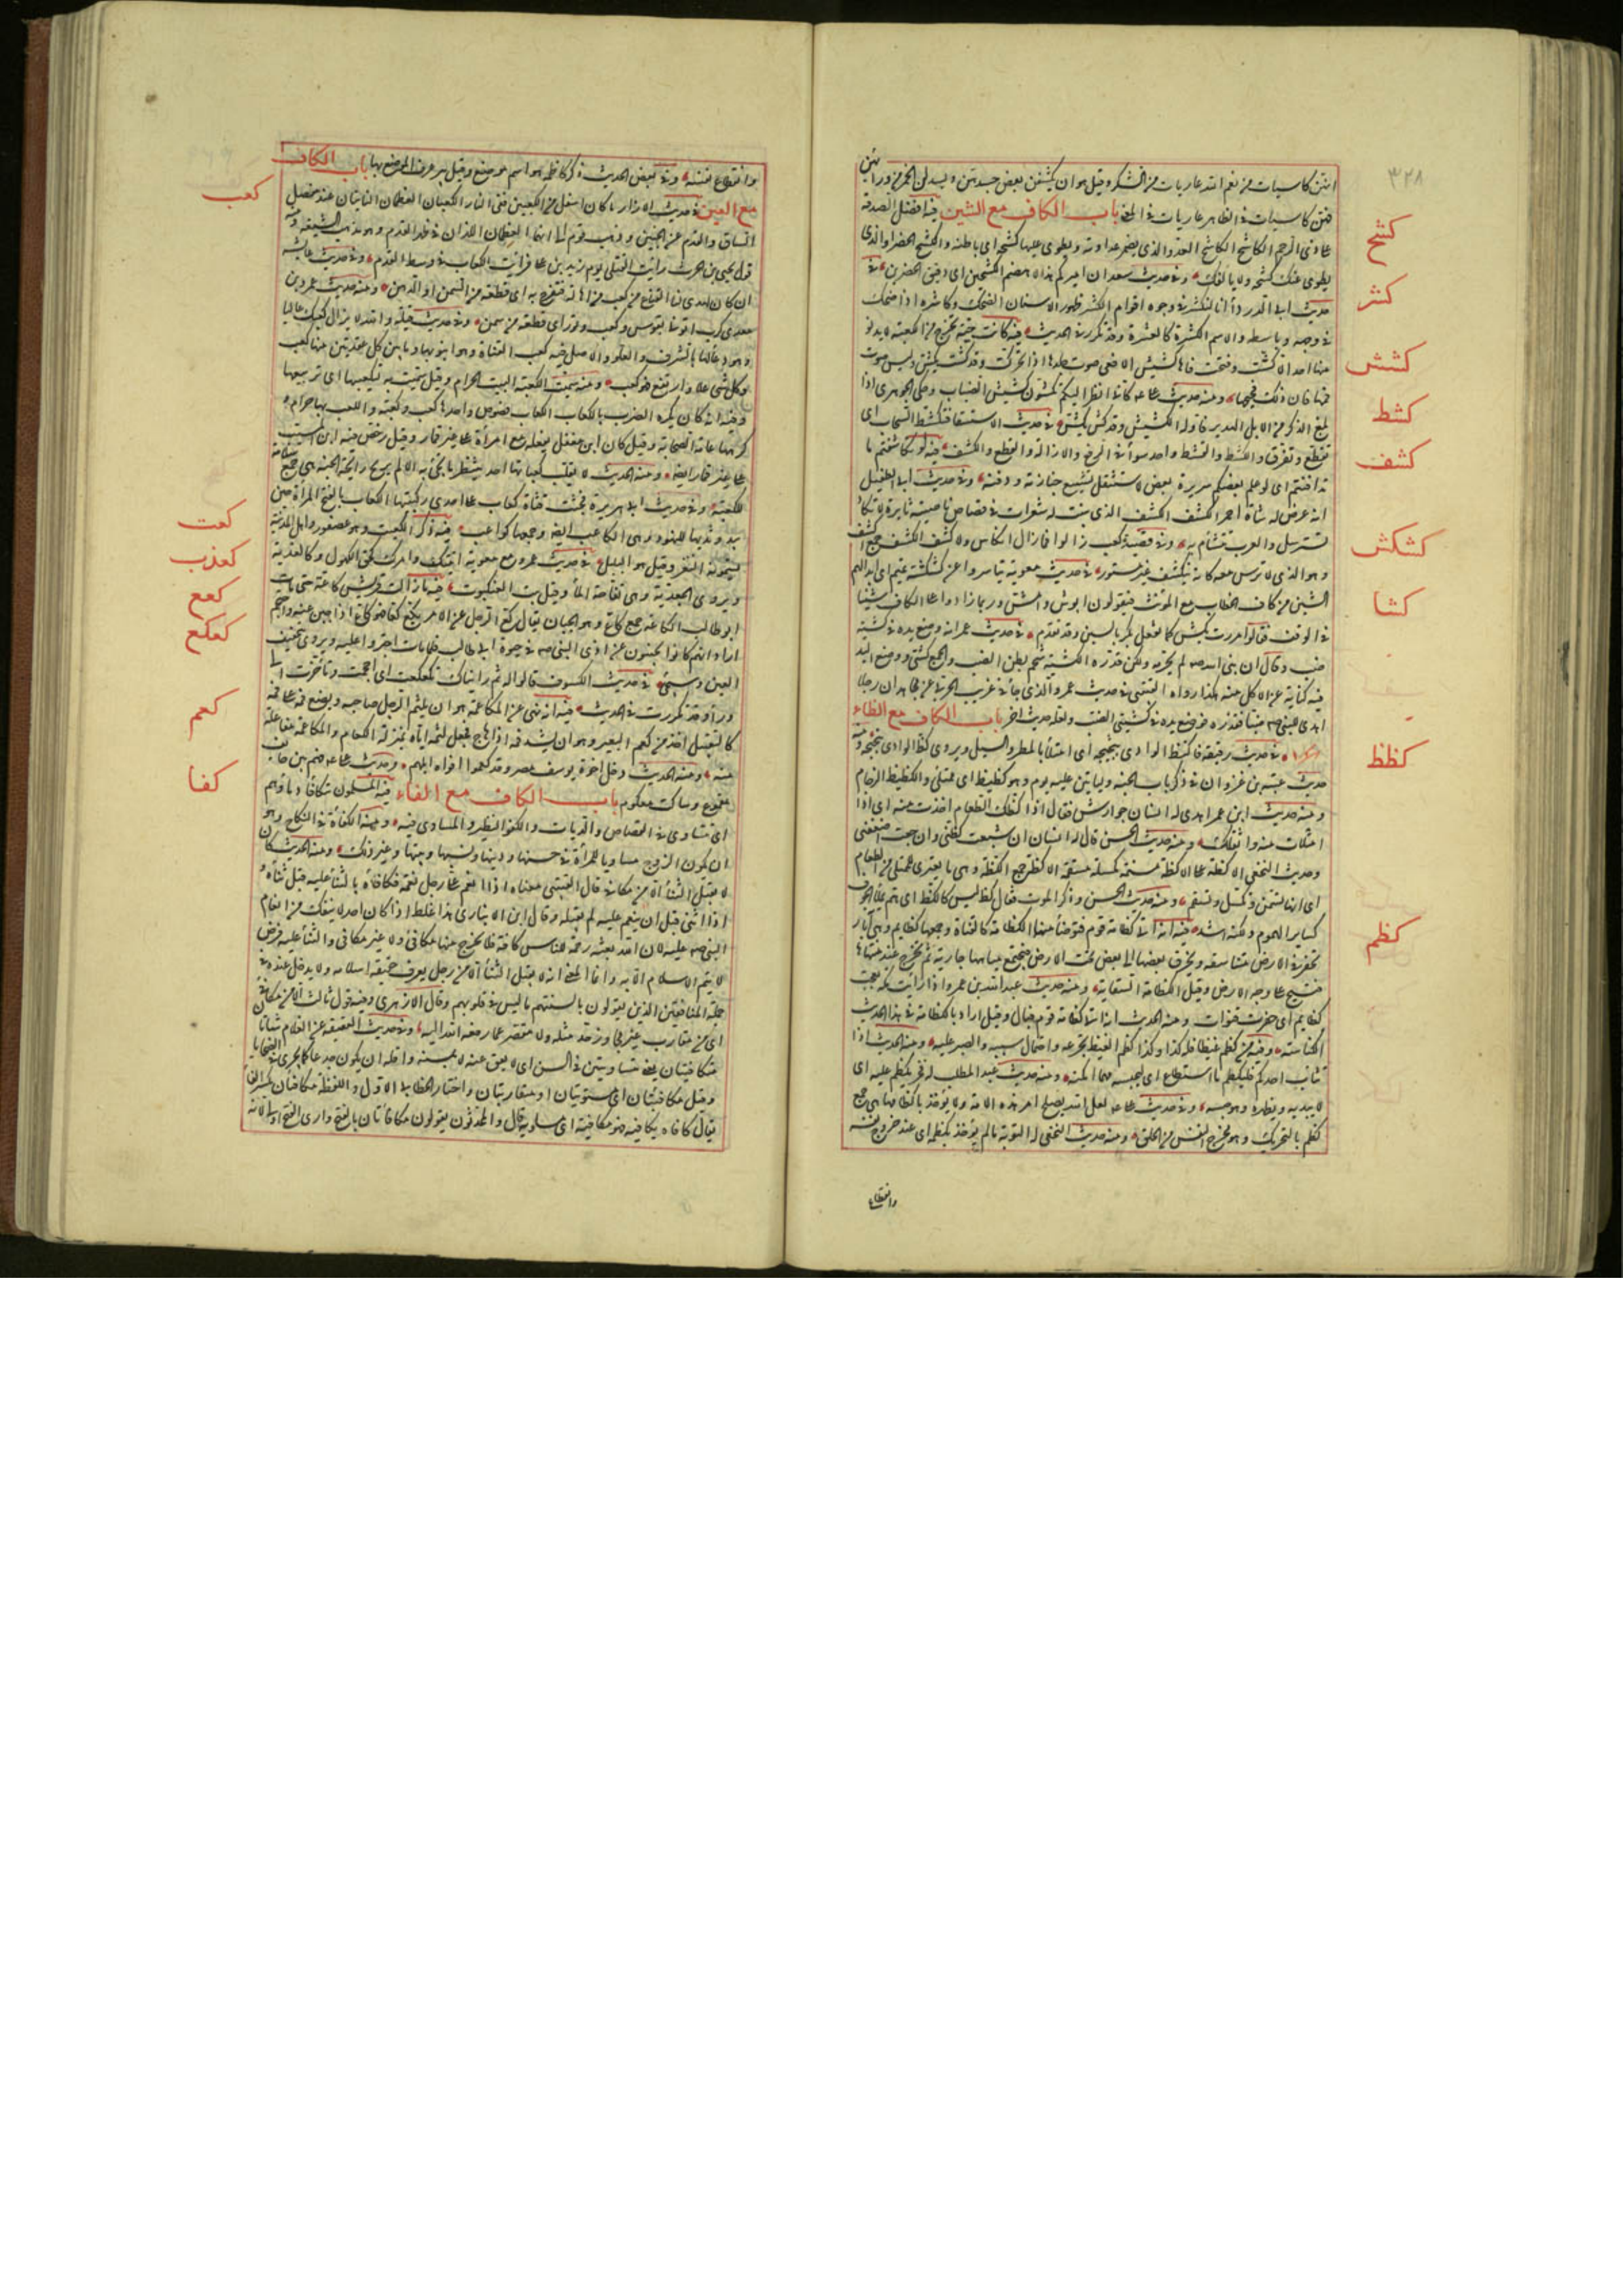 ٣٢٨
انهن كاسيات من نعم الله عاريات من الشكر وقيل هو ان يكشفن بعض جسدهن ويسدلن الخمر من ورائهن
فهن كاسيات في الظاهر عاريات في المعنى باب الكاف مع الشين فيه افضل الصدقة
على ذي الرحم الكاشح الكاشح العدو الذي يضمر عداوته ويطوي عليها كشحه اى باطنه والكشح الخصر او الذي
يطوي عنك كشحه ولا يالفك وفي حديث سعد ان اميركم هذا لاهضم الكشحين اى دقيق الخصرين في
حديث ابى الدرداء انا لنكشر في وجوه اقوام الكشر ظهور الاسنان للضحك وكاشره اذا ضحك
في وجهه وباسطه والاسم الكشرة كالعشرة وقد تكرر في الحديث فيه كانت حية تخرج من الكعبة لا يدنو
منها احد الا كشت وفتحت فاها كشيش الافعى صوت جلدها اذا تحركت وقد كشت تكش وليس صوت
فمها فان ذلك فحيحها ومنه حديث على كانى انظر اليكم تكشون كشيش الضباب وحكى الجوهرى اذا
بلغ الذكر من الابل الهدير فاوله الكشيش وقد كش يكش في حديث الاستسقاء فتكشط السحاب اى
تقطع وتفرق والكشط والقشط واحد سواء في الرفع والازالة والقلع والكشف فيه لو تكاشفتم ما
تدافنتم اى لو علم بعضكم سريرة بعض لاستثقل تشييع جنازته ودفنه وفي حديث ابى الطفيل
انه عرض له شاب احمر اكشف الاكشف الذي تنبت له شعرات في قصاص ناصيته ثايرة لا تكاد
تسترسل والعرب تتشأم به وفي قصيد كعب زالوا فما زال انكاس ولا كشف الكشف جمع اكشف
وهو الذي لا ترس معه كانه منكشف غير مستور في حديث معوية تياسروا عن كشكشة تميم اى ابدالهم
الشين من كاف الخطاب مع المؤنث فيقولون ابوش وامش وربما زادوا على الكاف شينا
في الوقف فقالوا مررت بكش كما تفعل بكر بالسين وقد تقدم في حديث عمر انه وضع يده في كشية
ضب وقال ان نبى الله لم يحرمه ولكن قذره الكشية شحم بطن الضب والجمع كشى ووضع اليد
فيه كناية عن الاكل منه هكذا رواه القتيبى في حديث عمر والذي جاء في غريب الحربى عن مجاهد ان رجلا
اهدى للنبى ضبا فقذره فوضع يده في كشيتى الضب ولعله حديث اخر باب الكاف مع الظاء
في حديث رقيقة فاكتظ الوادي بثجيجه اى امتلأ بالمطر والسيل ويروى كظ الوادي بثجيجه ومنه
حديث عتبة بن غزوان في ذكر باب الجنة ولياتين عليه يوم وهو كظيظ اى ممتلئ والكظيظ الزحام
ومنه حديث ابن عمر اهدى له انسان جوارش فقال اذا كظك الطعام اخذت منه اى اذا
امتلأت منه واثقلك ومنه حديث الحسن قال له انسان ان شبعت كظنى وان جعت اضعفنى
وحديث النخعى الاكظة على الاكظة مسمنة مكسلة مسقمة الاكظة جمع الكظة وهى ما يعترى الممتلئ من الطعام
اى انها تسمن وتكسل وتسقم ومنه حديث الحسن وذكر الموت فقال كظ ليس كالكظ اى هم يملأ الجوف
كساير الهموم ولكنه اشد فيه انه اتى كظامة قوم فتوضأ منها الكظامة كالقناة وجمعها كظايم وهى آبار
تحفر في الارض متناسقة ويخرق بعضها الى بعض تحت الارض فتجتمع مياهها جارية ثم تخرج عند منتهاها
فتسيح على وجه الارض وقيل الكظامة السقاية ومنه حديث عبد الله بن عمرو اذا رأيت مكة بعجت
كظايم اى حفرت قنوات ومنه الحديث انه اتى كظامة قوم فبال وقيل اراد بالكظامة في هذا الحديث
الكناسة وفيه من كظم غيظا فله كذا وكذا كظم الغيظ تجرعه واحتمال سببه والصبر عليه ومنه الحديث اذا
تثاءب احدكم فليكظم ما استطاع اى ليحبسه مهما امكنه ومنه حديث عبد المطلب له فخر يكظم عليه اى
لا يبديه ويظهره وهو حسبه وفي حديث على لعل الله يصلح امر هذه الامة ولا يؤخذ باكظامها هى جمع
كظم بالتحريك وهو مخرج النفس من الحلق ومنه حديث النخعى له التوبة ما لم يؤخذ بكظمه اى عند خروج نفسه
وانقطاع
كشح
كشر
كشش
كشط
كشف
كشكش
كشا
كظظ
كظم
وانقطاع نفسه وفي بعض الحديث ذكر كاظمة هو اسم موضع وقيل بير عرف الموضع بها باب الكاف
مع العين في حديث الازار ما كان اسفل من الكعبين ففى النار الكعبان العظمان الناتيان عند مفصل
الساق والقدم عن الجنبين وذهب قوم الى انهما العظمان اللذان في ظهر القدم وهو مذهب الشيعة ومنه
قول يحيى بن الحرث رأيت القتلى يوم زيد بن على فرأيت الكعاب في وسط القدم وفي حديث عايشة
ان كان ليهدى لنا القناع فيه كعب من اهالة فنفرح به اى قطعة من السمن او الدهن ومنه حديث عمرو بن
معدى كرب اتونى بقوس وكعب وثور اى قطعة من سمن وفي حديث قيلة والله لا يزال كعبك عاليا
وهو دعاء لها بالشرف والعلو والاصل فيه كعب القناة وهو انبوبها وما بين كل عقدتين منها كعب
وكل شى علا وارتفع فهو كعب ومنه سميت الكعبة البيت الحرام وقيل سميت به لتكعيبها اى تربيعها
وفيه انه كان يكره الضرب بالكعاب الكعاب فصوص واحدها كعب وكعبة واللعب بها حرام و
كرهها عامة الصحابة وقيل كان ابن مغفل يفعله مع امرأته على غير قمار وقيل رخص فيه ابن المسيب
على غير قمار ايضا ومنه الحديث لا يقلب كعباتها احد ينتظر ما تجئ به الا لم يرح رايحة الجنة هى جمع سلامة
للكعبة وفي حديث ابى هريرة فجثت فتاة كعاب على احدى ركبتيها الكعاب بالفتح المرأة حين
يبدو ثديها للنهود وهى الكاعب ايضا وجمعها كواعب فيه ذكر الكعيت وهو عصفور واهل المدينة
يسمونه النغر وقيل هو البلبل في حديث عمرو مع معوية اتيتك وامرك كحق الكهول وكالكعدبة
ويروى الجعدبة وهى نفاخة الماء وقيل بيت العنكبوت فيه ما زالت قريش كاعة حتى مات
ابو طالب الكاعة جمع كاع وهو الجبان يقال كع الرجل عن الامر يكع كعا فهو كاع اذا جبن عنه واحجم
اراد انهم كانوا يجبنون عن اذى النبى في حيوة ابى طالب فلما مات اجترءوا عليه ويروى بتخفيف
العين وسيجئ في حديث الكسوف قالوا له ثم رايناك تكعكعت اى احجمت وتأخرت الى
وراء وقد تكررت في الحديث فيه انه نهى عن المكاعمة هو ان يلثم الرجل صاحبه ويضع فمه على فمه
كالتقبيل اخذ من كعم البعير وهو ان يشد فمه اذا هاج فجعل لثمه اياه بمنزلة الكعام والمكاعمة مفاعلة
منه ومنه الحديث دخل اخوة يوسف مصر وقد كعموا افواه ابلهم وحديث على فهم بين خائف
مقموع وساكت مكعوم باب الكاف مع الفاء فيه المسلمون تتكافأ دماؤهم
اى تتساوى في القصاص والديات والكفؤ النظير والمساوى فيه ومنه الكفاءة في النكاح وهو
ان يكون الزوج مساويا للمرأة في حسبها ودينها ونسبها وبيتها وغير ذلك ومنه الحديث كان
لا يقبل الثناء الا من مكافئ قال القتيبى معناه اذا انعم على رجل نعمة فكافأه بالثناء عليه قبل ثناءه و
اذا اثنى قبل ان ينعم عليه لم يقبله وقال ابن الانبارى هذا غلط اذا كان احد لا ينفك من انعام
النبى عليه لان الله بعثه رحمة للناس كافة فلا يخرج منها مكافئ ولا غير مكافئ والثناء عليه فرض
لا يتم الاسلام الا به وانما المعنى انه لا يقبل الثناء الا من رجل يعرف حقيقة اسلامه ولا يدخل عنده في
جملة المنافقين الذين يقولون بالسنتهم ما ليس في قلوبهم وقال الازهرى وفيه قول ثالث الا من مكافئ
اى من مقارب غير مجاوز حد مثله ولا مقصر عما رفعه الله اليه وفي حديث العقيقة عن الغلام شاتان
متكافيتان يعنى متساويتين في السن اى لا يعق عنه الا بمسنة واقله ان يكون جذعا كما يجزى في الضحايا
وقيل مكافئتان اى مستويتان او متقاربتان واختار الخطابى الاول واللفظة مكافئتان بكسر الفاء
يقال كافاه يكافيه فهو مكافيه اى مساويه قال والمحدثون يقولون مكافأتان بالفتح وارى الفتح اولى لانه
كعب
كعت
كعدب
كعع
كعكع
كعم
كفا